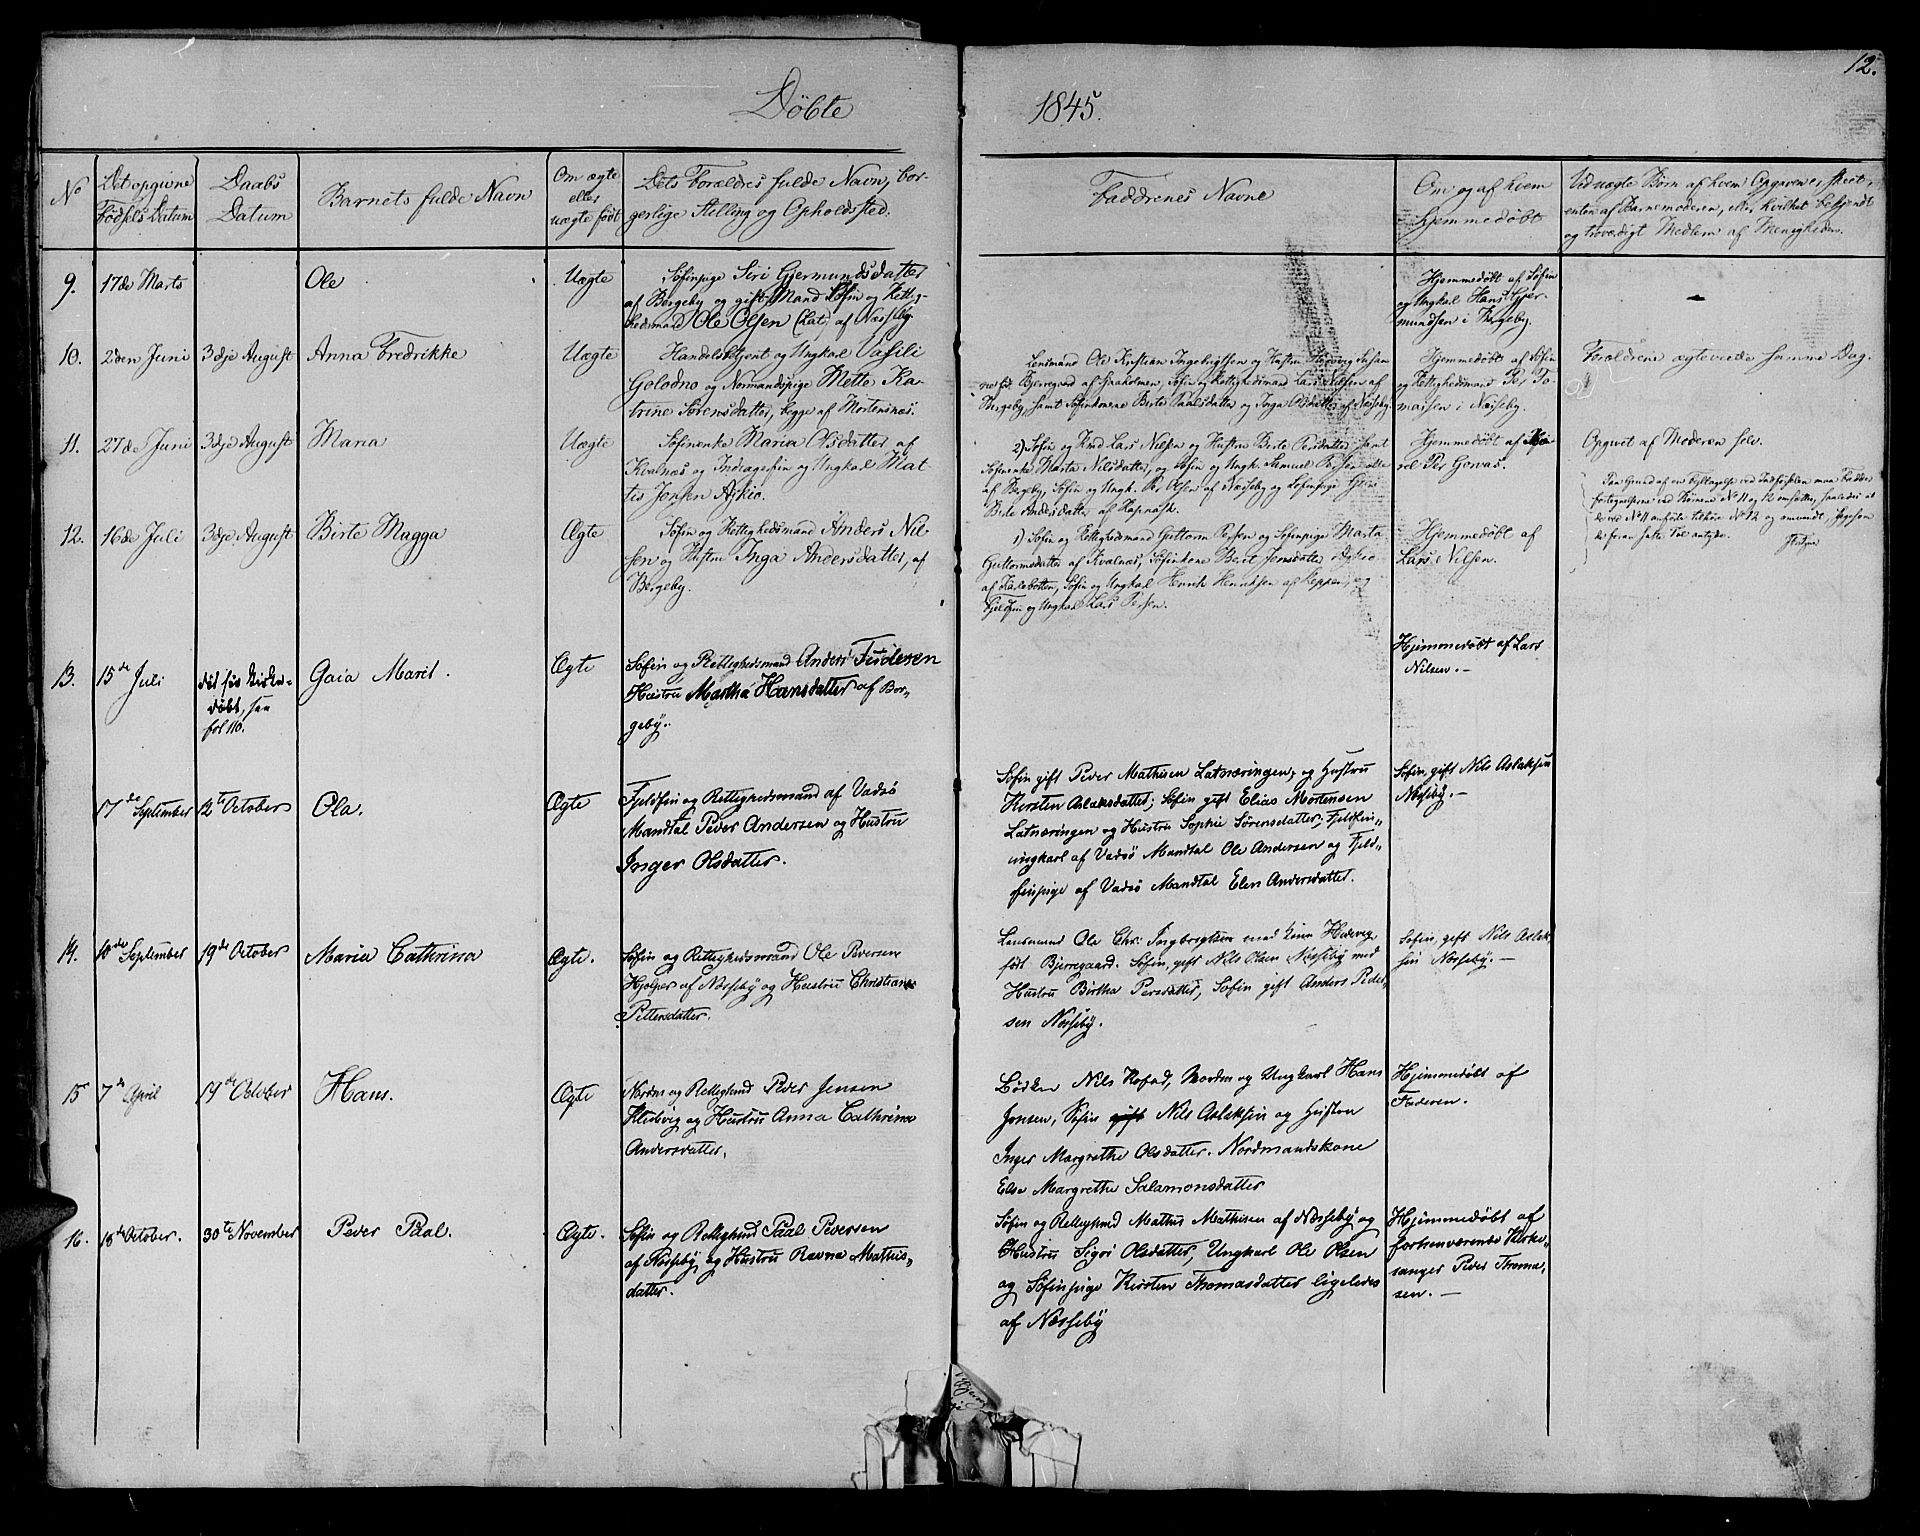 12.
Döbte
1845.
No
Det opgivne
Födsels-Datum
Daabs
Datum
Barnets fulde Navn
Om ægte
eller
uægte födt
Dets Forældres fulde Navn, bor-
gerlige Stilling og Opholdssted.
Faddrenes Navne
Om og af hvem
hjemmedöbt
Ved uægte Börn af hvem Opgaven er skeet,
enten af Barnemoderen, eller hvilket bekjendt
og troværdigt Medlem af Menigheden.
9.
17de Marts
Ole
Uægte
Söfinpige Siri Gjermundsdatter
af Bergeby og gift Mand Söfin og Rettig-
hedsmand Ole Olsen (Lat) af Næsseby
Hjemmedöbt af Söfin
og Ungkal Hans Gjer-
mundsen i Bergeby.
10.
2den Juni
3dje August
Anna Fredrikke
Uægte
Handelsbetjent og Ungkal Vasili
Golodno og Normandspige Mette Ka-
trine Sörensdatter, begge af Mortensnes.
Lensmand Ole Kristian Ingebrigtsen og Hustru Hedevig Susan
födt Bjerregord af Söfin og Rettighedsmand Lars Nilsen af
Bergeby, samt Söfinkonerne Berte Paalsdatter og Inga Olsdatter af Næsseby.
Hjemmedöbt af Söfin
og Rettighedsmand Per To-
massen i Næsseby.
Forældrene ægteviede samme Dag.
11.
27de Juni
3dje August
Maria
Uægte
Söfinenke Maria Olsdatter af
Kvalnæs og Indragefin og Ungkal Mat-
tis Jensen Ajkio.
2) Söfin og Rmd Lars Nilsen og Hustru Birte Persdatter samt
Söfinenke Marta Nilsdatter, og Söfin og Ungk. Samuel alle
af Bergeby, Söfin og Ungk. Per Olsen af Næsseby og Söfinpige
Birte Andersdatter af
Hjemmedöbt af
Per
Opgivet af Moderen selv.
Paa Grund af en Feiltagelse ved Indförselen maa Fadder-
fortegnelserne ved Börnene No 11 og 12 omsættes, saaledes at
de ved No 11 anförte tilhöre No 12 og omvendt,
de foran satte Tal antyde.
12.
16de Juli
3dje August
Birte Magga
Ægte
Söfin og Rettighedsmand Anders Nil-
sen og Hustru Inga Andersdatter, af
Bergeby.
1) Söfin og Rettighedsmand Guttorm Persen og Söfinpige Marta
Guttormsdatter af Kvalnæs, Söfinkone Berit Jonsdatter
af Karlebotten, Söfin og Ungkal Henrik Henriksen af og
Fjeldfin og Ungkal Lars Persen.
Hjemmedöbt af
Lars Nilsen.
13.
15de Juli
döbt,
fol 110.
Gaia Marit.
Ægte
Söfin og Rettighedsmand Anders
Hustru Martha Hansdatter af Ber-
geby.
Hjemmedöbt af Lars
Nilsen.-
17de September
12te October
Ola.
Ægte
Fjeldfin og Rettighedsmand af Vadsö
Mandtal Peder Andersen og Hustru
Inger Olsdatter.
Söfin gift Peder Mathisen Latnæringen, og Hustru
Kirsten Aslaksdatter; Söfin gift Elias Mortensen
Latnæringen og Hustru Sophie Sörensdatter; Fjeldfin,,
ungkarl af Vadsö Mandtal Ole Andersen og Fjeld,,
finpige af Vadsö Mandtal Elen Andersdatter.
Söfin, gift Nils Aslaksen
Næsseby.-
14.
10de September
19de October
Maria Cathrina
Ægte.
Söfin og Rettighedsmand Ole Pedersen
Hjelper af Næsseby og Hustru Christiane
Pettersdatter.
Lensmand Ole Chr: Ingbregtsen med kone Hedevig
födt Bjerregaard. Söfin, gift Nils Olsen Næsseby med
Hustru Birtha Persdatter, Söfin gift Anders Peder,
sen Næsseby.
Söfin, gift Nils Aslak,
sen Næsseby.-
15
7de April
19de October
Hans.
Ægte
Nordm og Rettighmd Peder Jensen
og Hustru Anna Cathrina
Andersdatter.
Bödker Nils Kofod, Nordm og Ungkarl Hans
Jensen, Söfin gift Nils Aslaksen og Hustru
Inger Margrethe Olsdatter. Nordmandskone
Else Margrethe Salamonsdatter
Hjemmedöbt af
Faderen.
16.
18de October.
30te November
Peder Paal.
Ægte.
Söfin og Rettighmd Paal Pedersen
af Næsseby og Hustru Ravna Mathis,,
datter.
Söfin og Rettighmd Mathis Mathisen af Næsseby og
Hustru Sigri Olsdatter, Ungkarl Ole Olsen
og Söfinpige Kirsten Thomasdatter ligeledes
af Næsseby
Hjemmedöbt af
forhenværende Kirke,
sanger Peder Thoma,
sen.-